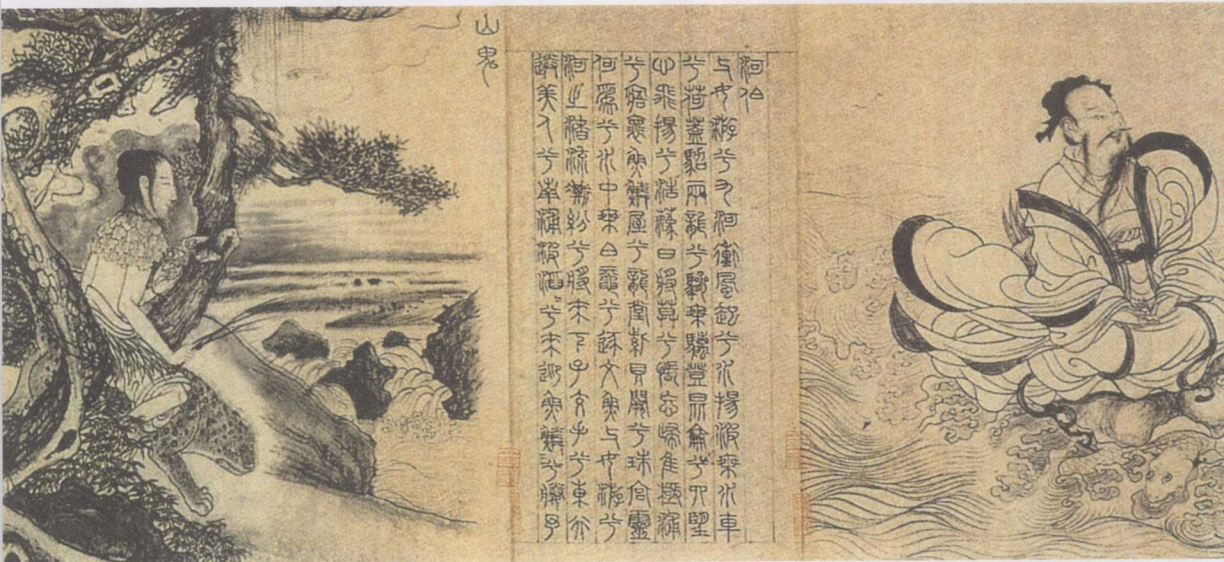 河伯
与女游兮九河衝風起兮水揚波乘水車
兮荷蓋駕兩龍兮驂乘螭登昆侖兮四望
心飛揚兮浩蕩日將莫兮悵忘歸惟極浦
兮寤懷魚鱗屋兮龍堂紫貝闕兮珠宮靈
何爲兮水中乘白黿兮逐文魚与女游兮
河之渚流澌紛兮將來下子交手兮東行
送美人兮南浦波滔兮來迎魚鱗兮媵予
山鬼